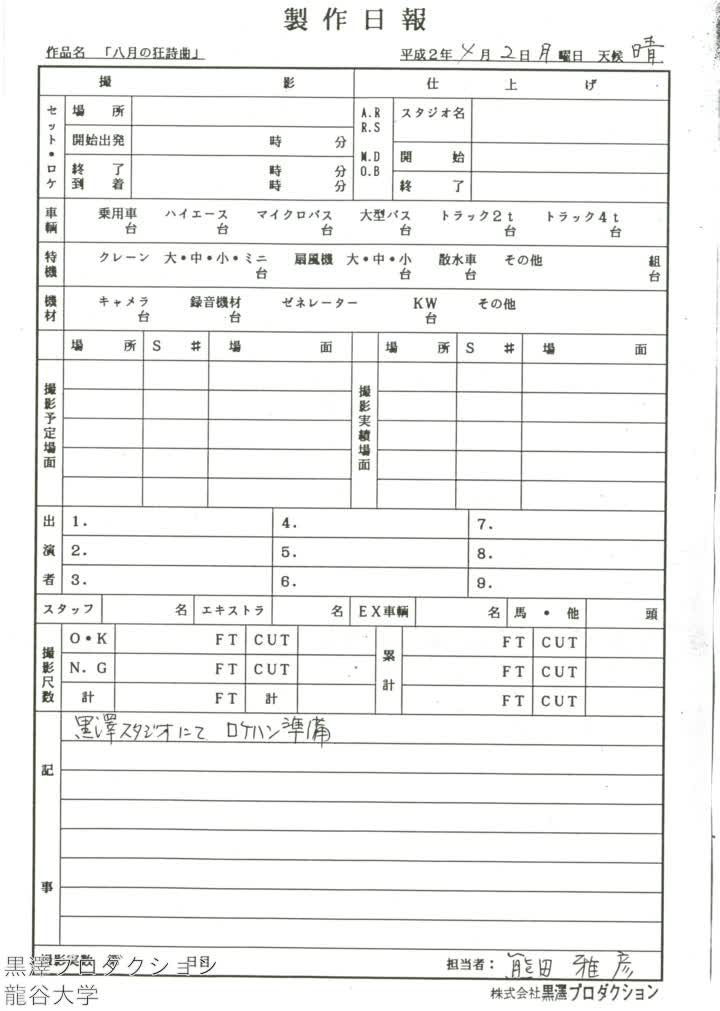 製作日報
作品名 「八月の狂詩曲」 平成2年 4月 2日 月曜日 天候 晴
撮影 仕上げ
セット・ロケ 場所 A.R R.S M.D O.B スタジオ名
開始出発 時 分 開始
終了 時 分 終了
到着 時 分
車輌 乗用車 台 ハイエース 台 マイクロバス 台 大型バス 台 トラック2t 台 トラック4t 台
特機 クレーン 大・中・小・ミニ 台 扇風機 大・中・小 台 散水車 台 その他 組 台
機材 キャメラ 台 録音機材 台 ゼネレーター KW 台 その他
場所 S # 場面 場所 S # 場面
撮影予定場面 撮影実績場面
出演者 1. 4. 7.
2. 5. 8.
3. 6. 9.
スタッフ 名 エキストラ 名 EX車輌 名 馬・他 頭
撮影尺数 O・K FT CUT 累計 FT CUT
N.G FT CUT FT CUT
計 FT 計 FT CUT
記事
黒澤スタジオにて ロケハン準備
撮影実数 第 日目 担当者: 熊田雅彦
株式会社黒澤プロダクション
黒澤プロダクション
龍谷大学